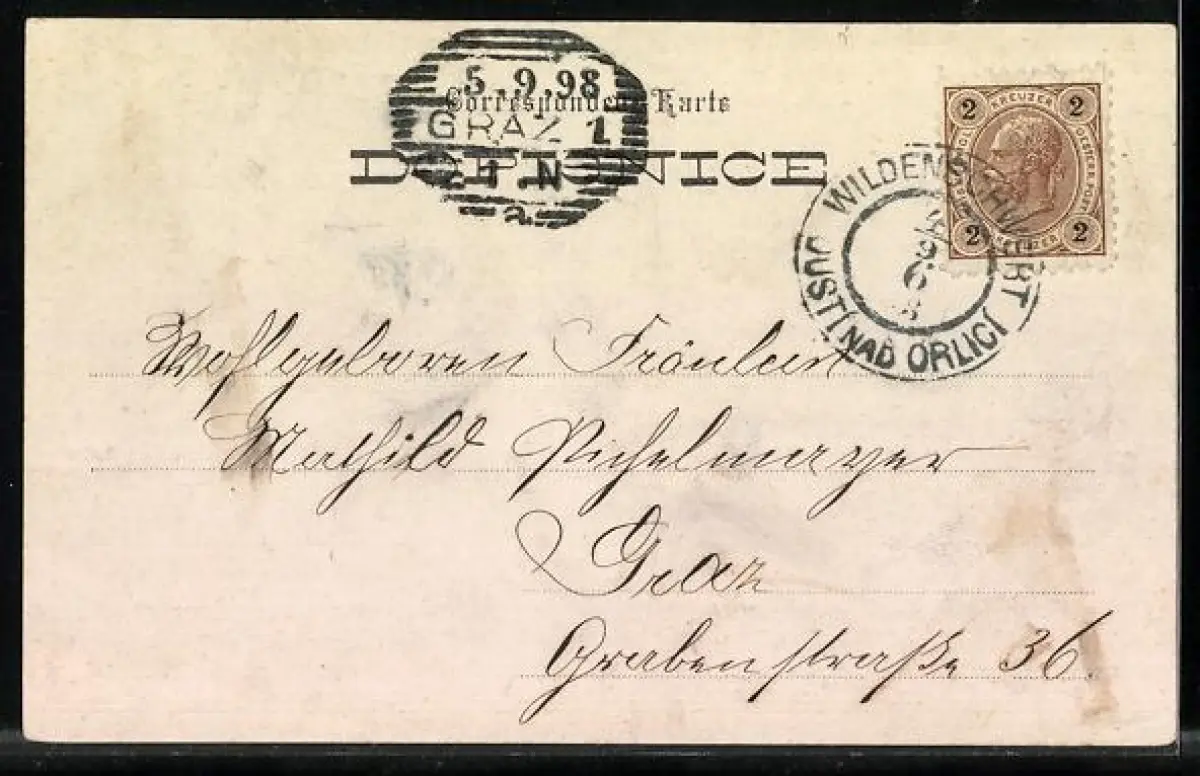 5.9.98
Correspondenz-Karte
GRAZ 1
DOPISNICE
1 N
a
2 KREUZER 2
2 KREUZER 2
WILDENSCHWERT
OUSTÍ NAD ORLICÍ
Wohlgeboren Fräulein
Mathild Pichelmayer
Graz
Grabenstraße 36.